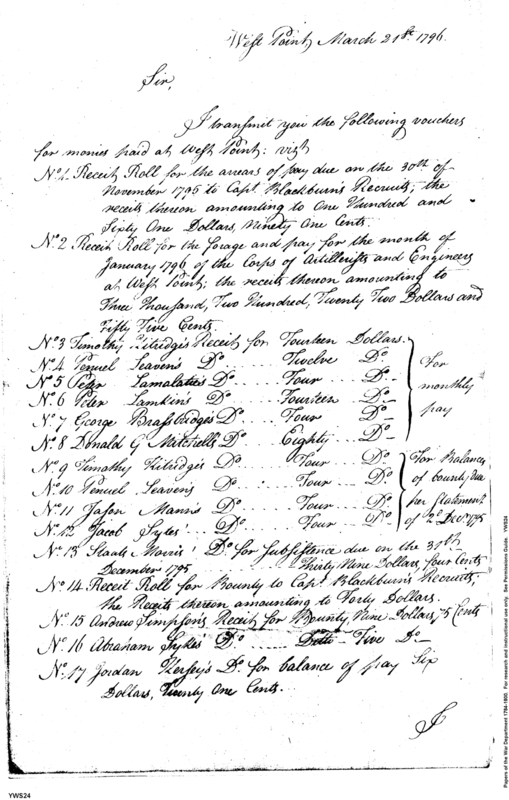 West Point, March 21st. 1796.
Sir,
I transmit you the following vouchers
for monies paid at West Point: vizt
No. 1. Receit Roll for the arrears of pay due on the 30th of
November 1795 to Capt. Blackburn's Recruits; the
receits thereon amounting to One Hundred and
Sixty One Dollars, Ninety One Cents.
No. 2 Receit Roll for the forage and pay for the month of
January 1796 of the Corps of Artillerists and Engineers
at West Point; the receits thereon amounting to
Three Thousand, Two Hundred, Twenty Two Dollars and
Fifty Five Cents.
No. 3 Timothy Kitridge's Receit for Fourteen Dollars.
No. 4 Penuel Seaven's Do. ... Twelve ... Do
No. 5 Peter Lamalatie's Do. ... Four ... Do.
No. 6 Peter Lamkin's Do. ... Fourteen ... Do
No. 7 George Brassbridge's Do. ... Four ... Do
No. 8 Donald G Mitchell's Do. ... Eighty ... Do
For
monthly
pay
No. 9 Timothy Kitridge's Do ... Four ... Do
No. 10 Penuel Seaven's Do ... Four ... Do
No. 11 Jason Mann's Do ... Four ... Do
No. 12 Jacob Sykes Do ... Four ... Do
For Balance
of bounty due
per statement
of 2d. Decr. 1795
No. 13 Staats Morris' Do. for Subsistance due on the 31th
December 1795 Thirty Nine Dollars, four Cents
No. 14 Receit Roll for Bounty to Capt. Blackburn's Recruits;
the Receits thereon amounting to Forty Dollars.
No. 15 Andrew Simpson's Receit for Bounty, Nine Dollars, 5 Cents
No. 16 Abraham Sykes' Do ... Ditto Five Do
No. 17 Jordan Hersey's Do. for balance of pay Six
Dollars, Twenty One Cents.
I
YWS24
Papers of the War Department 1784-1800. For research and instructional use only. See Permissions Guide. YWS24